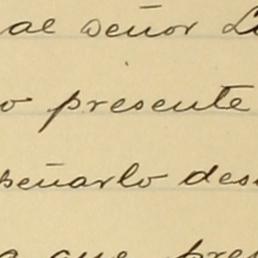 al señor
o presente
señarlo des
que pres